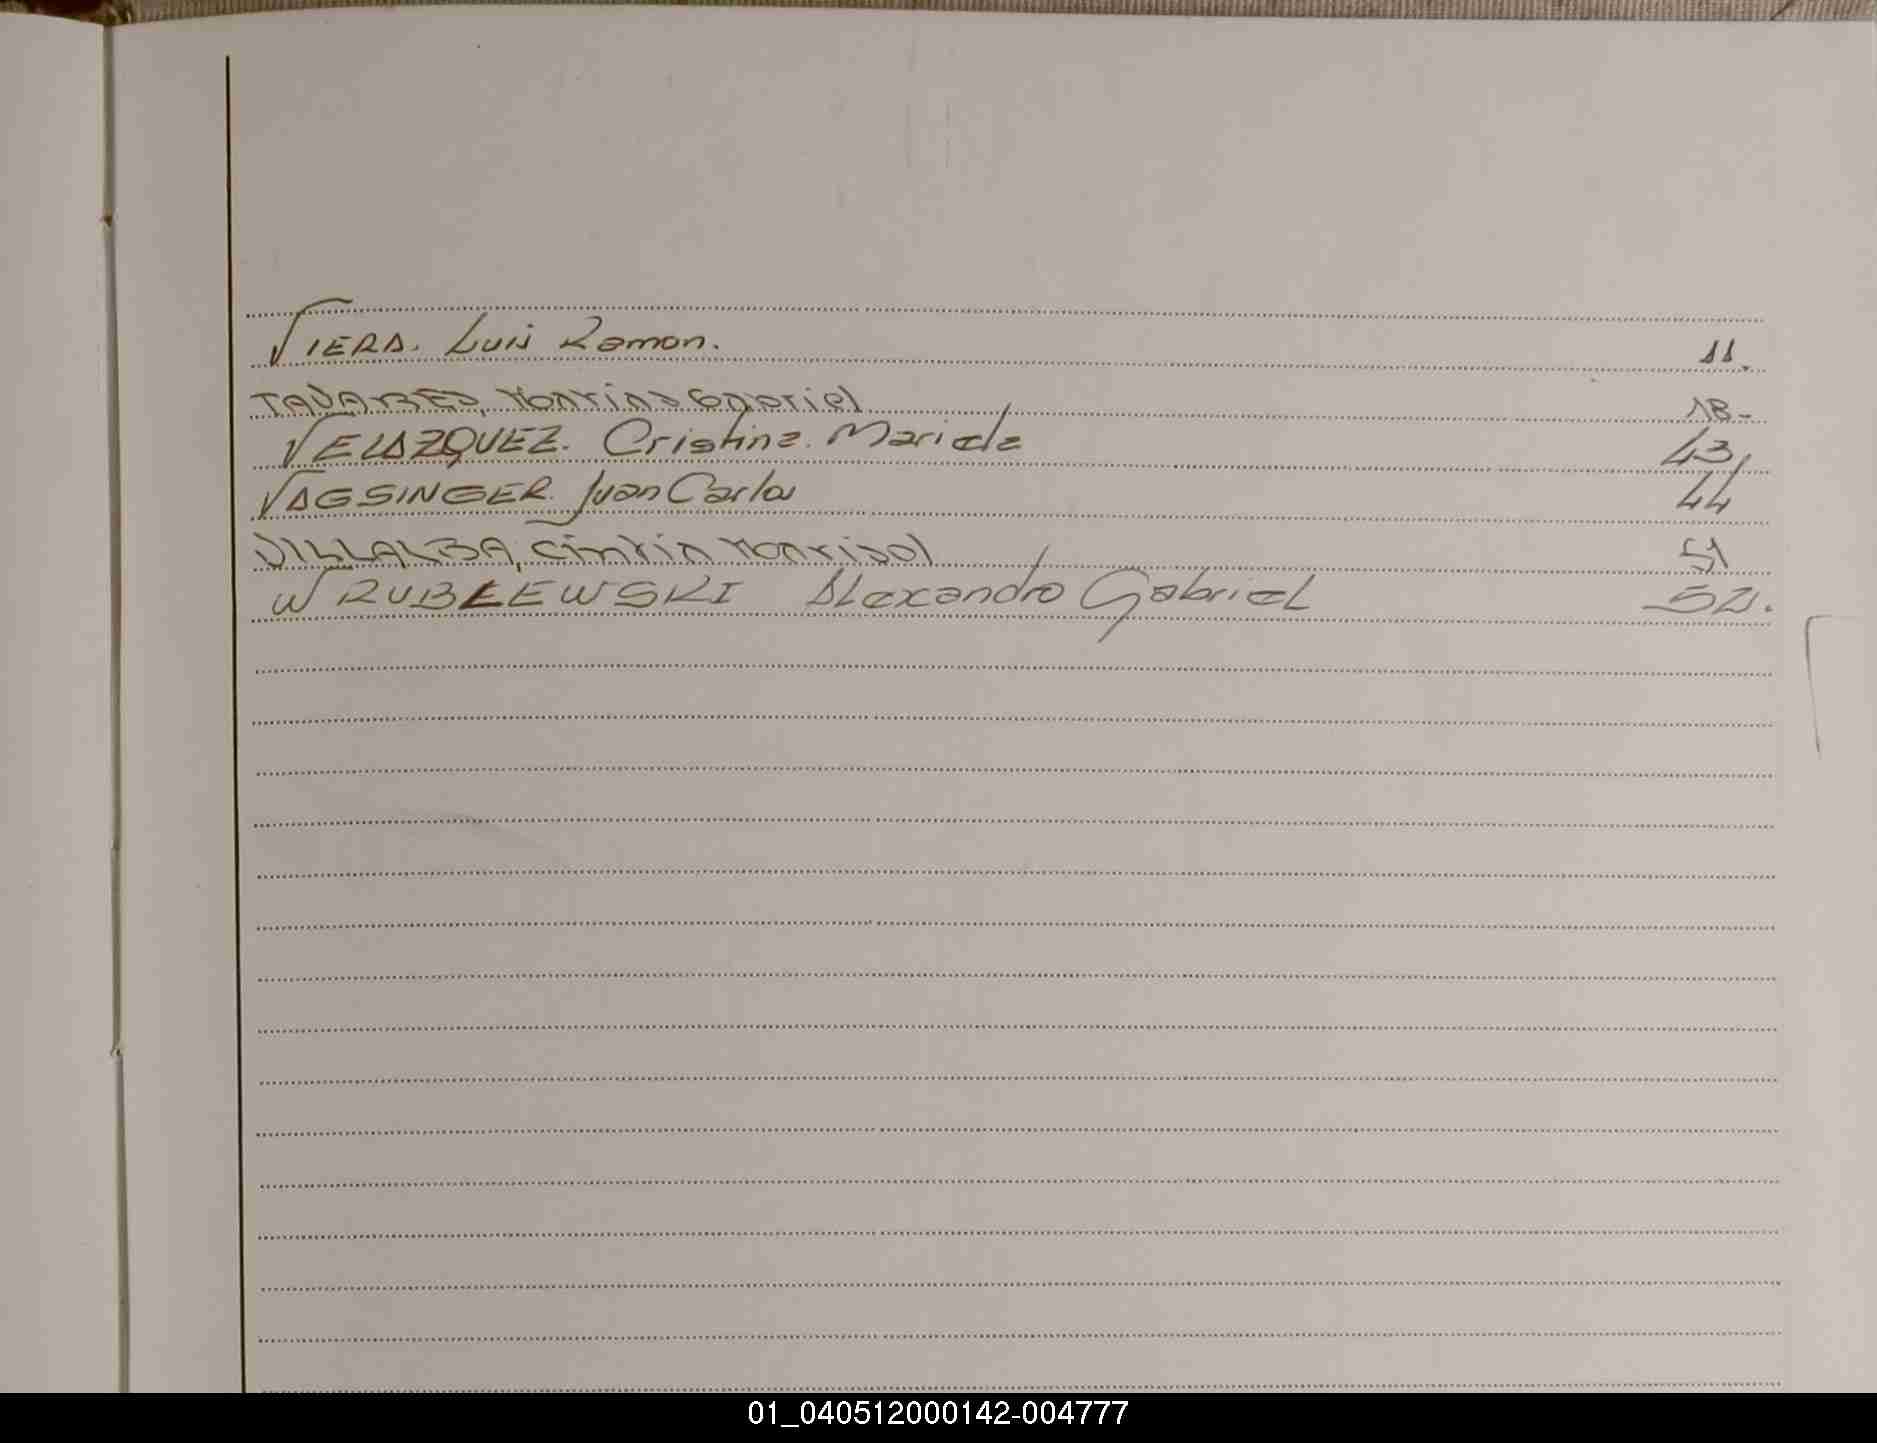 VIERA. Luis Ramon. 11.
TAVARES, Matias Gabriel 18-
VELAZQUEZ. Cristina. Mariela 43
VAGSINGER. Juan Carlos 44
VILLALBA, Cintia Marisol 51
WRUBLEWSKI Alexandro Gabriel 52.
01_040512000142-004777